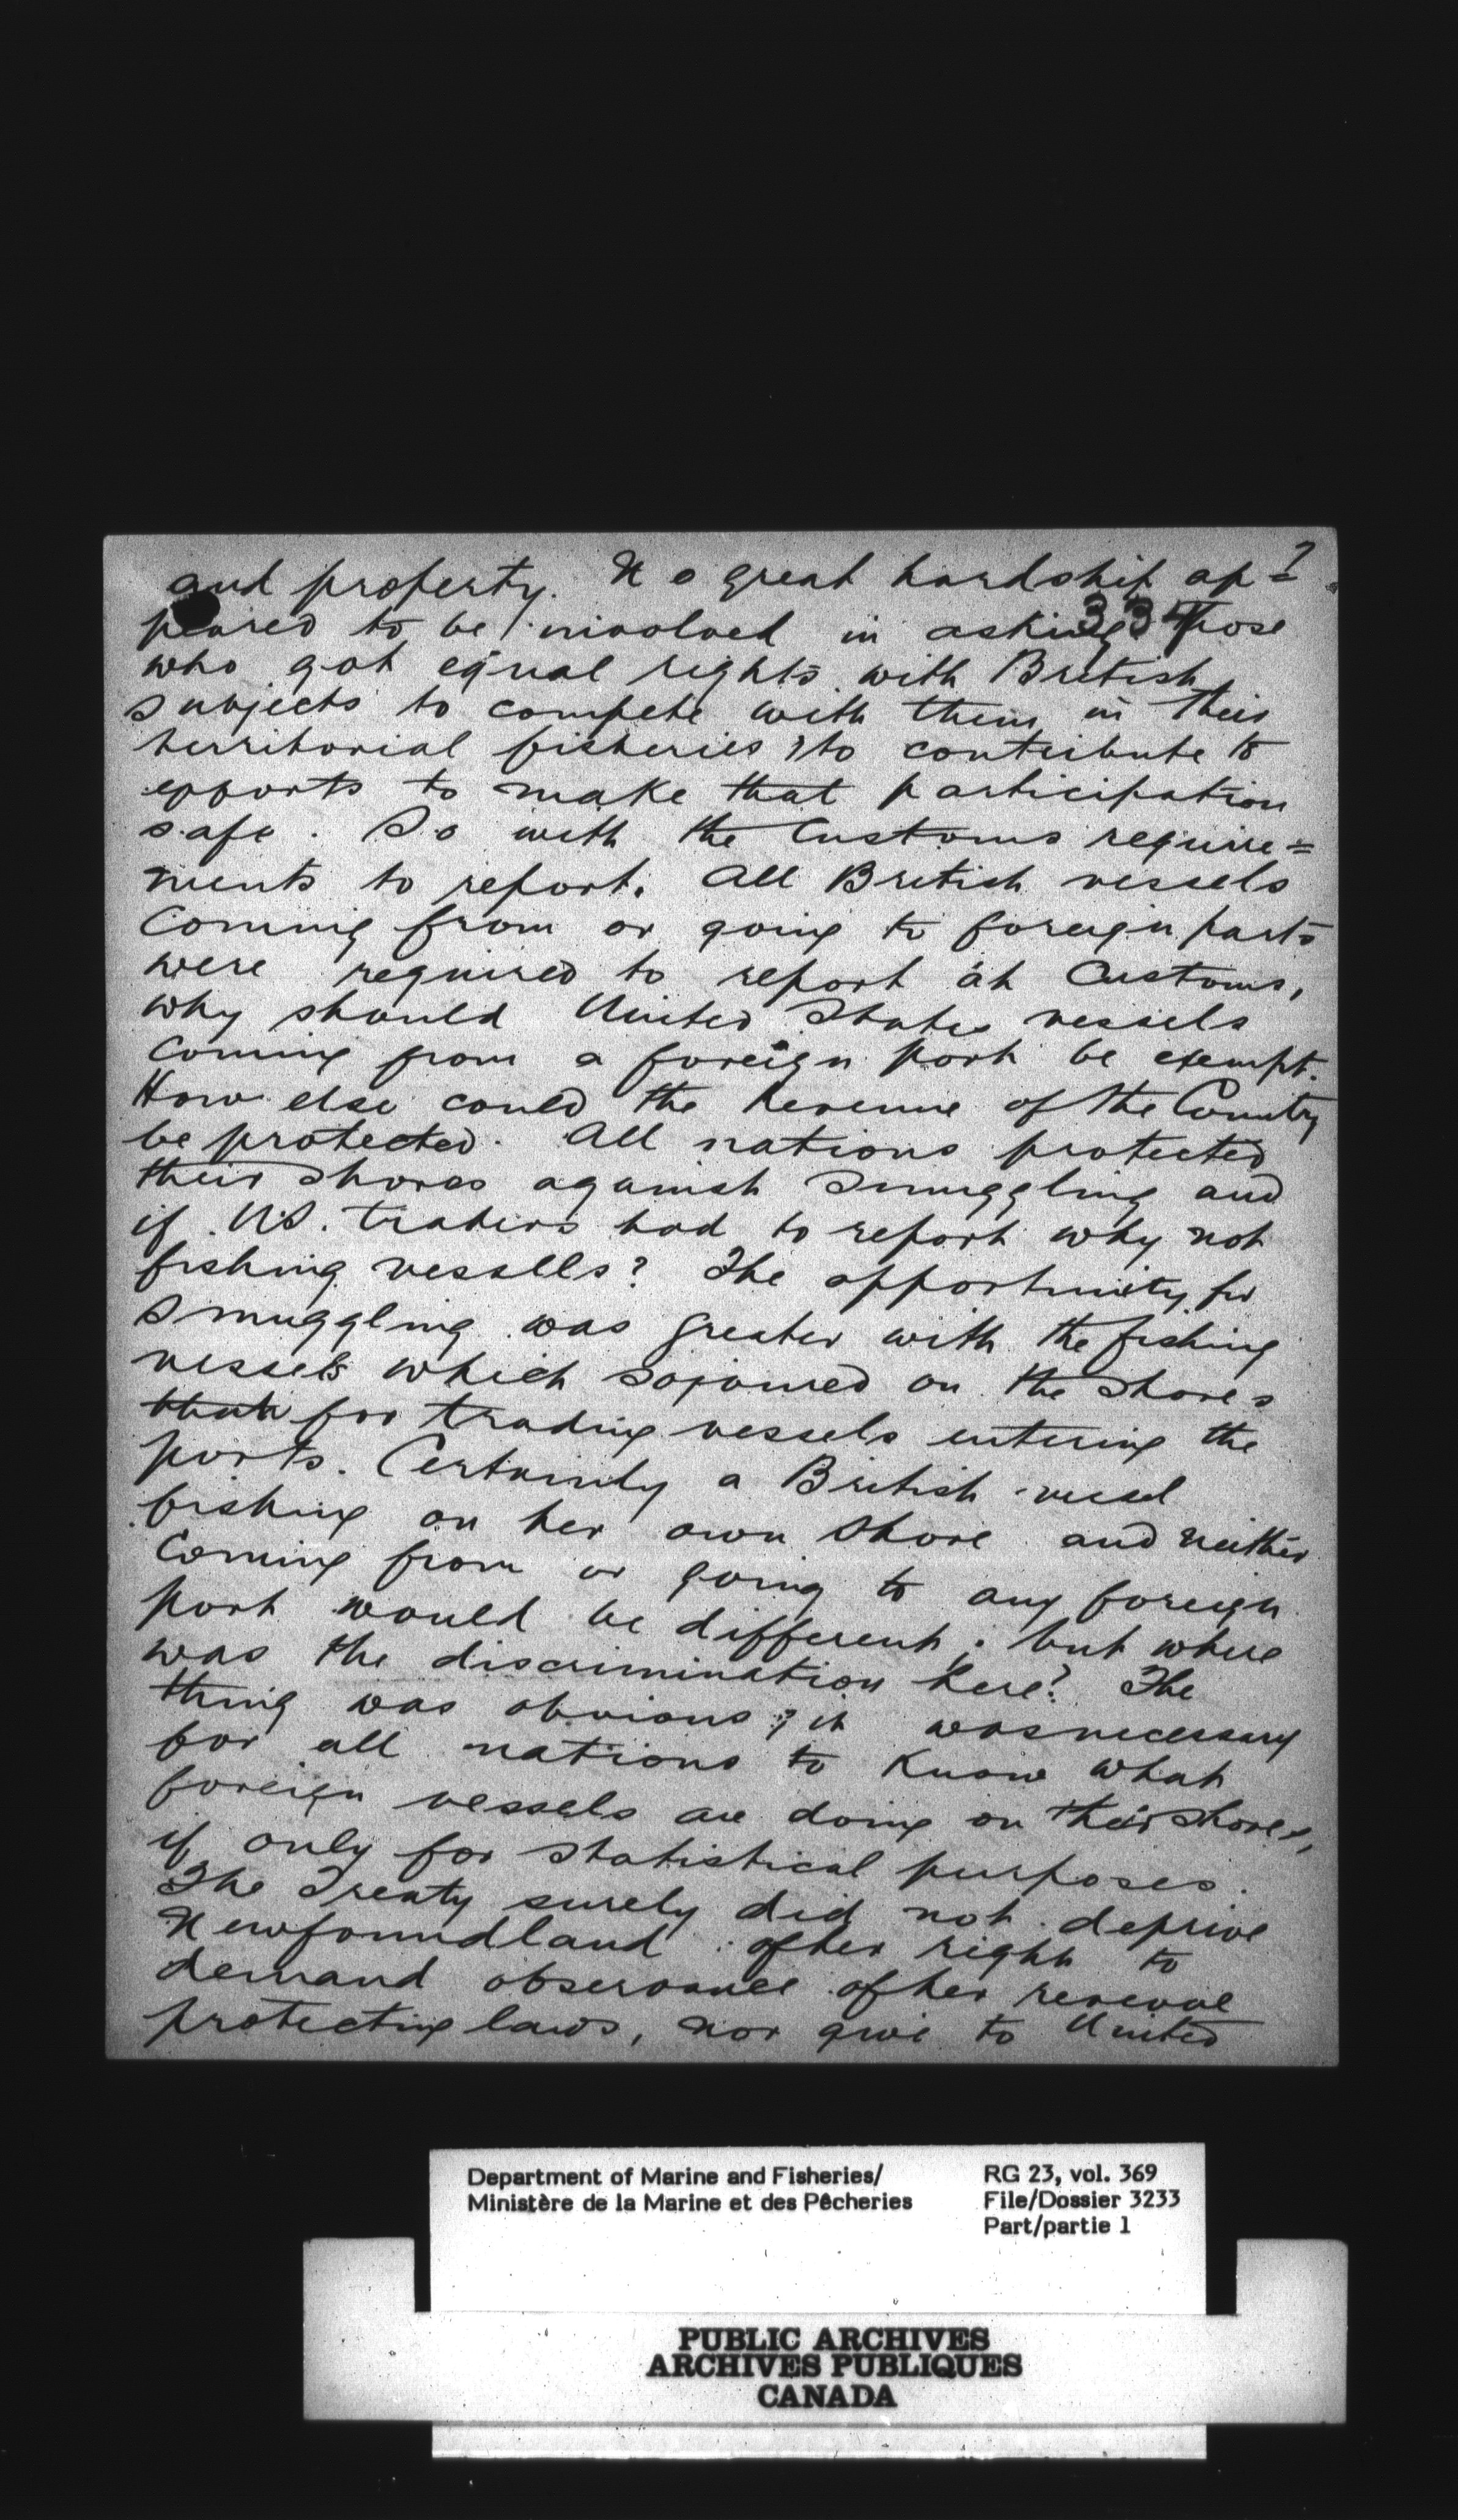 7
and property. No great hardship ap=
334
peared to be involved in asking those
who got equal rights with British
subjects to compete with them in their
territorial fisheries, to contribute to
efforts to make that participation
safe. So with the Customs require=
ments to report. All British vessels
Coming from or going to foreign parts
were required to report at Customs,
why should United States vessels
coming from a foreign port be exempt.
How else could the Revenue of the Country
be protected. All nations protected
their shores against smuggling and
if U.S. traders had to report why not
fishing vessells? The opportunity for
smuggling was greater with the fishing
vessels which sojourned on the shores
than for trading vessels entering the
ports. Certainly a British vessel
fishing on her own shore and neither
Coming from or going to any foreign
port would be different; but where
was the discrimination here? The
thing was obvious; it was necessary
for all nations to know what
foreign vessels are doing on their shores,
if only for statistical purposes.
The Treaty surely did not deprive
Newfoundland of her right to
demand observance of her revenue
protecting laws, nor give to United
Department of Marine and Fisheries/
Ministère de la Marine et des Pêcheries
RG 23, vol. 369
File/Dossier 3233
Part/partie 1
PUBLIC ARCHIVES
ARCHIVES PUBLIQUES
CANADA